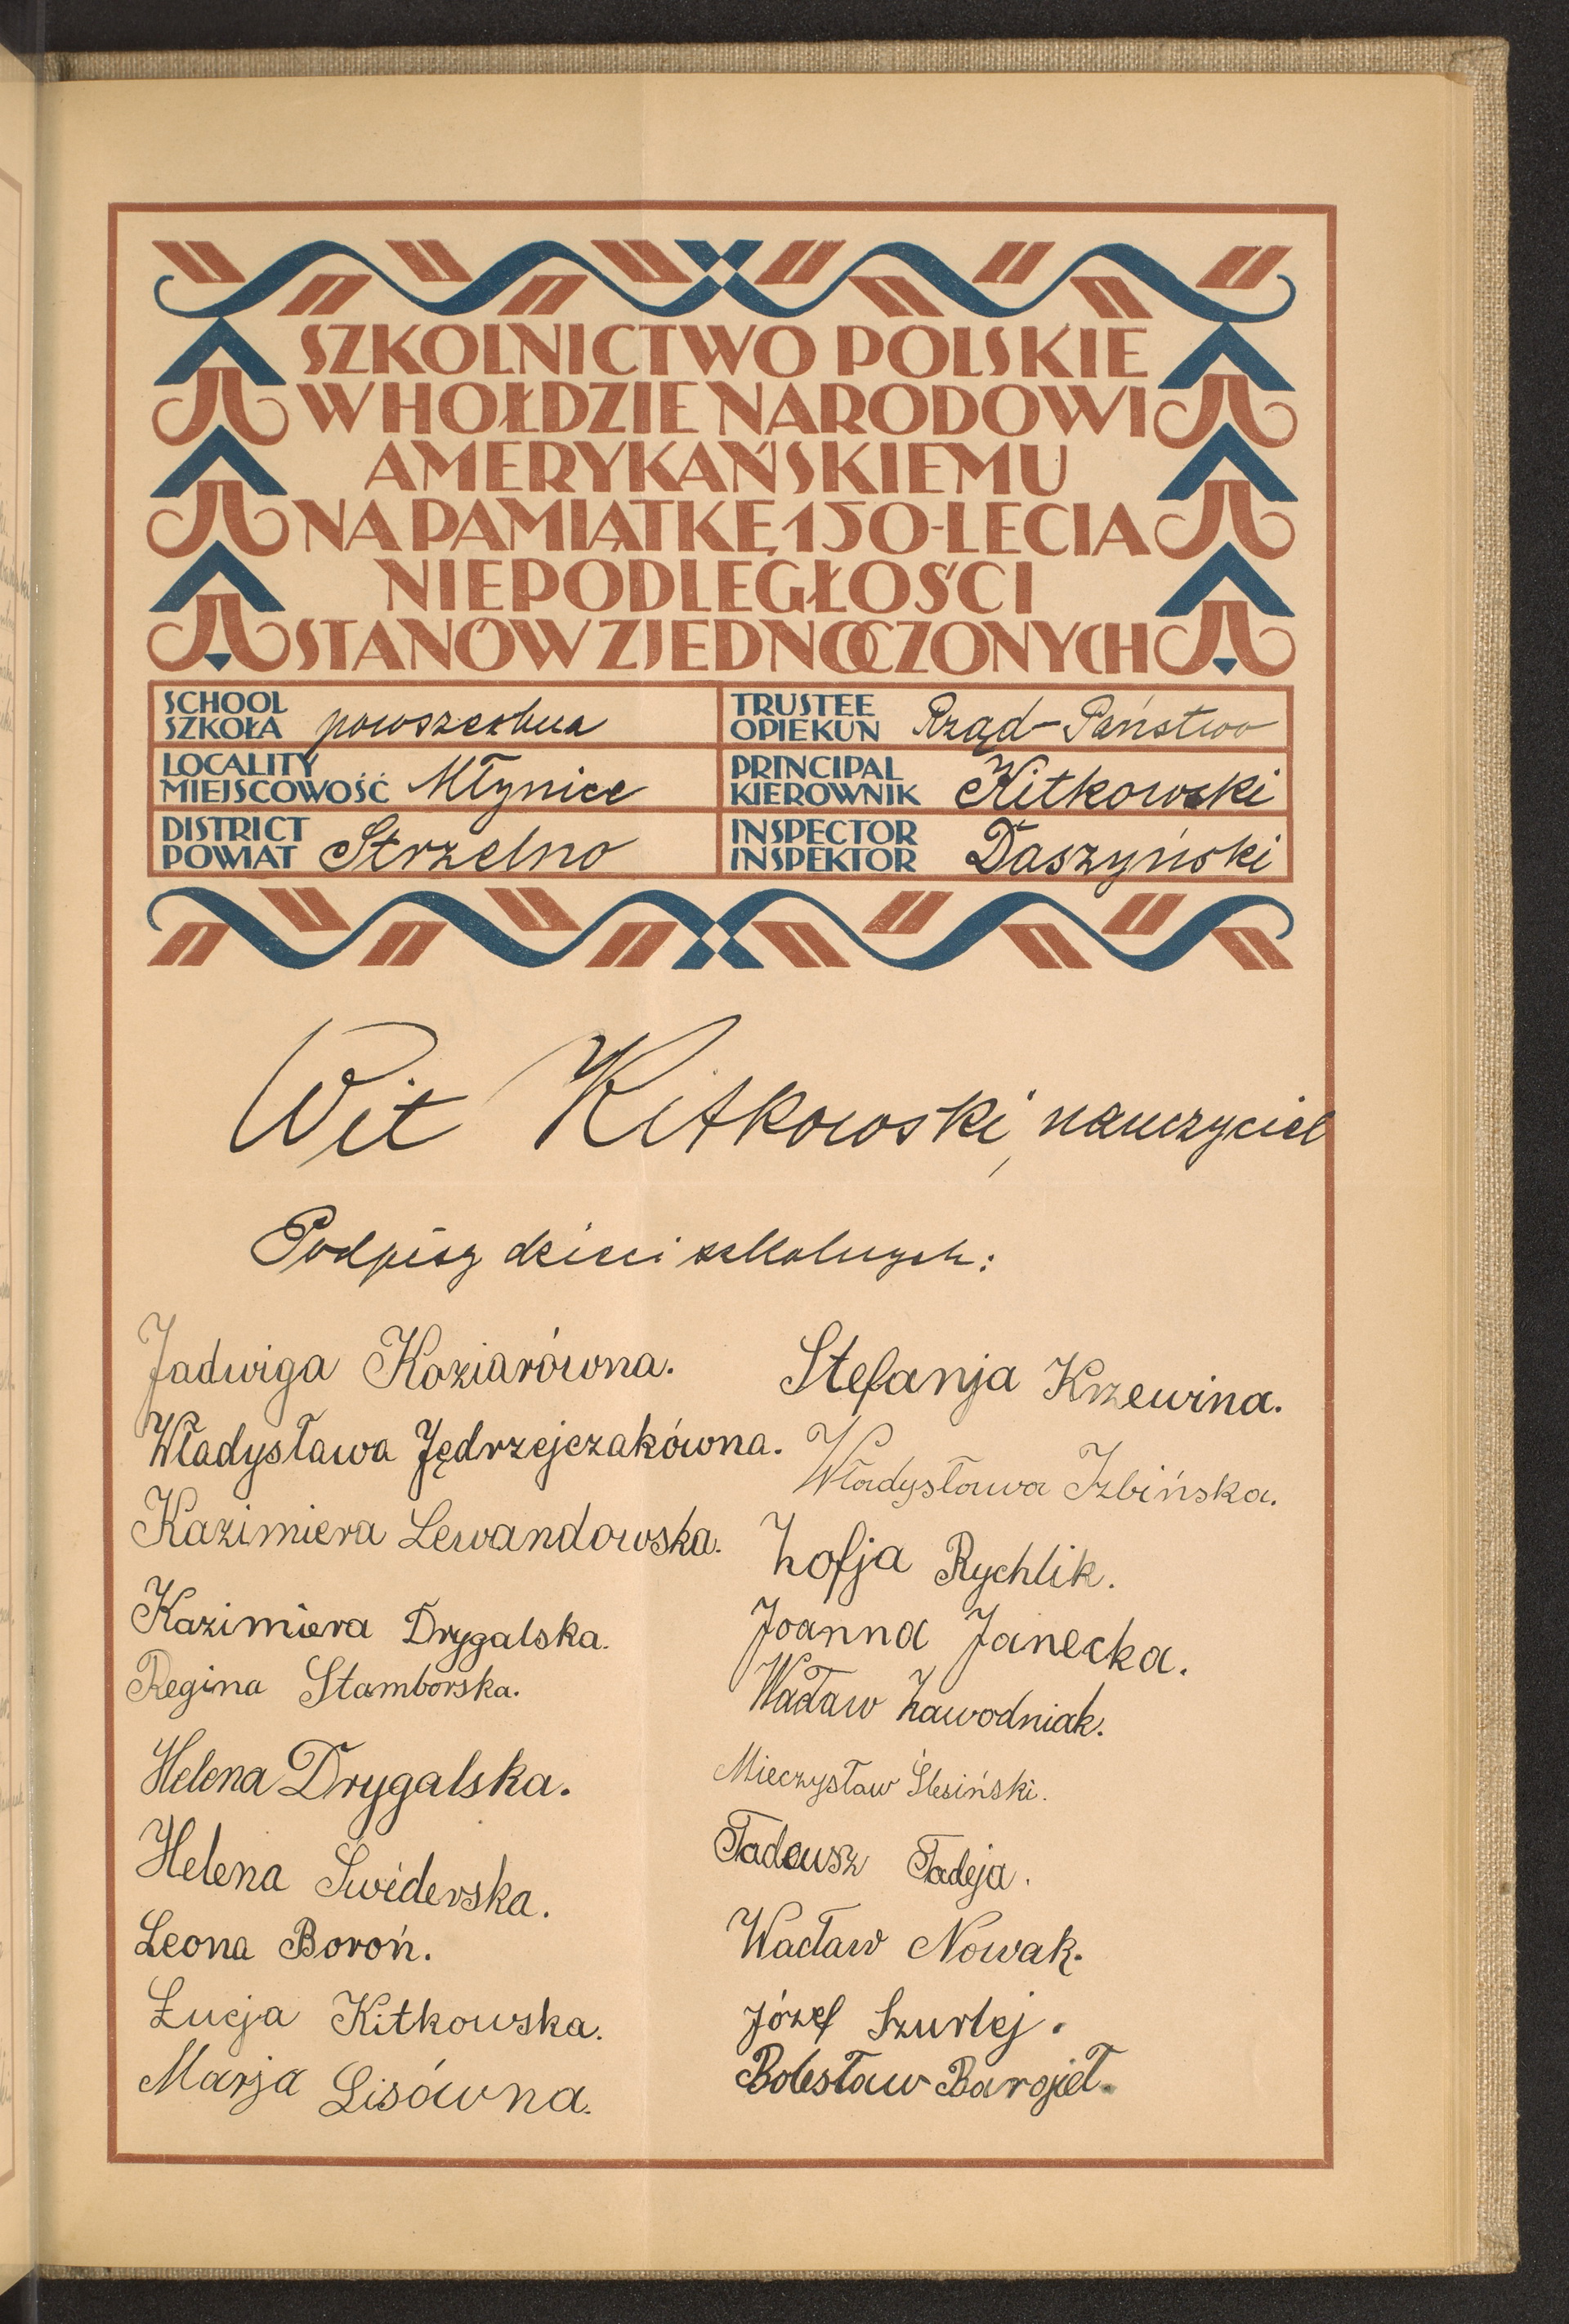 SZKOLNICTWO POLSKIE
W HOŁDZIE NARODOWI
AMERYKAŃSKIEMU
NA PAMIĄTKĘ 150-LECIA
NIEPODLEGŁOŚCI
STANÓW ZJEDNOCZONYCH
SCHOOL
SZKOŁA powszechna
TRUSTEE
OPIEKUN Rząd-Państwo
LOCALITY
MIEJSCOWOŚĆ Młynice
PRINCIPAL
KIEROWNIK Kitkowski
DISTRICT
POWIAT Strzelno
INSPECTOR
INSPEKTOR Daszyński
Wit Kitkowski, nauczyciel
Podpisy dzieci szkolnych:
Jadwiga Koziarówna.
Władysława Jędrzejczakówna.
Kazimiera Lewandowska.
Kazimiera Drygalska.
Regina Stamborska.
Helena Drygalska.
Helena Świderska.
Leona Boroń.
Łucja Kitkowska.
Marja Lisówna.
Stefanja Krzewina.
Władysława Izbińska.
Zofja Rychlik.
Joanna Janecka.
Wacław Zawodniak.
Mieczysław Ślesiński.
Tadeusz Tadeja.
Wacław Nowak.
Józef Szurlej.
Bolesław Bargieł.